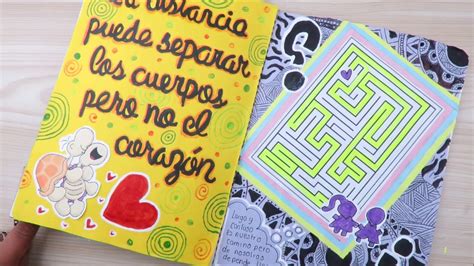 La distancia
puede separar
los cuerpos
pero no el
corazón
largo y
confuso
es nuestro
camino pero
de nosotros
depende